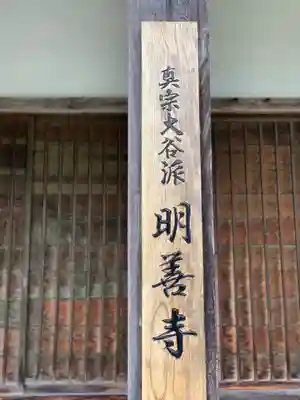 真宗大谷派 明善寺